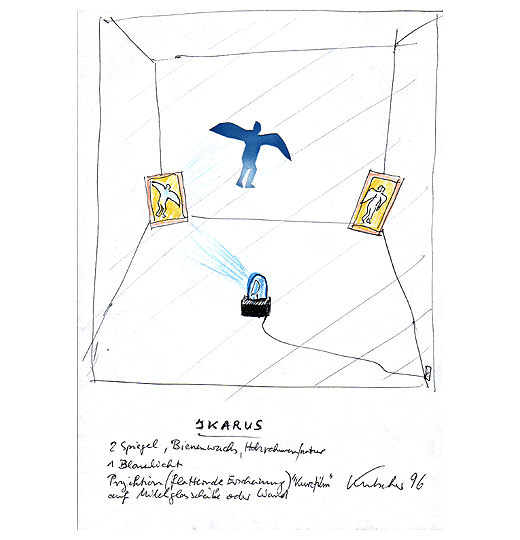 IKARUS
2 Spiegel, Bienenwachs, Holzrahmen/natur
1 Blaulicht
Projektion (flatternde Erscheinung) "Kurzfilm"
auf Milchglasscheibe oder Wand
96